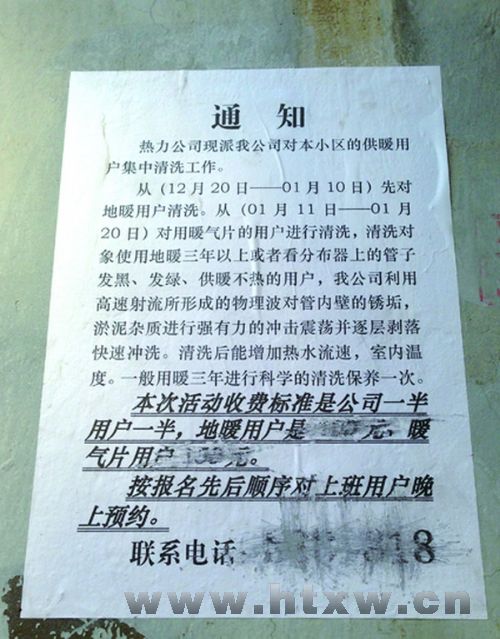 通知
热力公司现派我公司对本小区的供暖用
户集中清洗工作。
从(12月20日——01月10日)先对
地暖用户清洗。从(01月11日——01月
20日)对用暖气片的用户进行清洗，清洗对
象使用地暖三年以上或者看分布器上的管子
发黑、发绿、供暖不热的用户，我公司利用
高速射流所形成的物理波对管内壁的锈垢，
淤泥杂质进行强有力的冲击震荡并逐层剥落
快速冲洗。清洗后能增加热水流速，室内温
度。一般用暖三年进行科学的清洗保养一次。
本次活动收费标准是公司一半
用户一半，地暖用户是 元，暖
气片用户 元。
按报名先后顺序对上班用户晚
上预约。
联系电话 818
www.htxw.cn